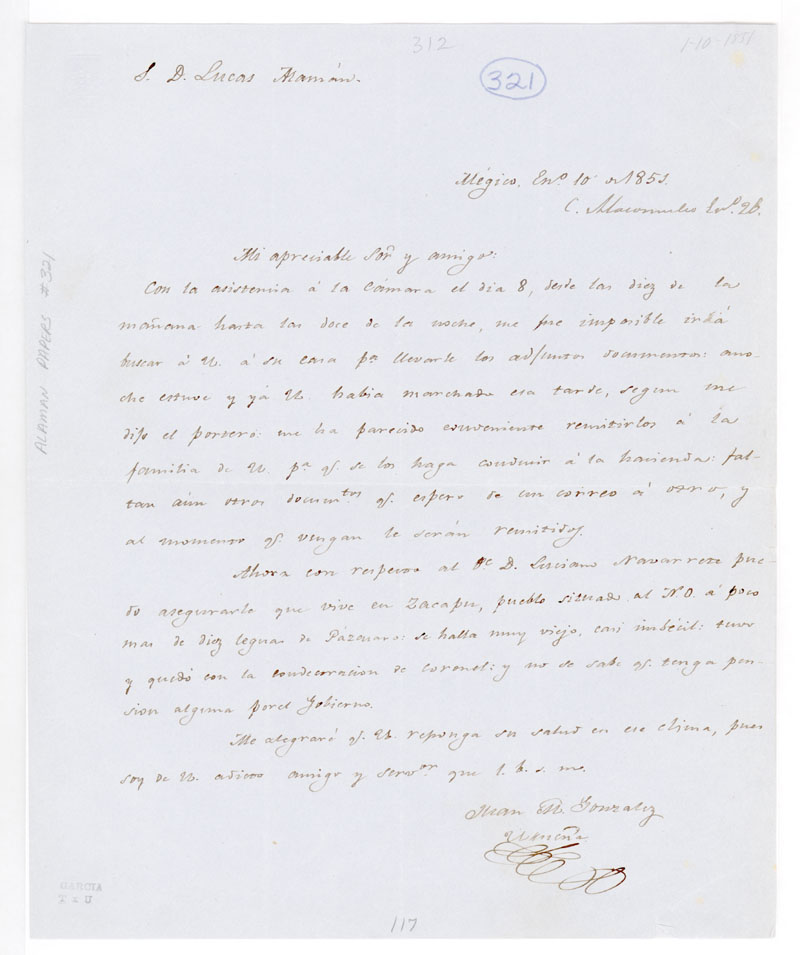 312
1-10-1851
S. D. Lucas Alamán.
321
Mégico, Enº. 10 de 1851.
C. Enº. 26.
Mi apreciable Sor. y amigo:
Con la asistencia á la Cámara el dia 8, desde las diez de la
mañana hasta las doce de la noche, me fue imposible irá
buscar á U. á su casa pa. llevarle los adjuntos documentos: ano-
che estuve y yá U. habia marchado esa tarde, segun me
dijo el portero: me ha parecido conveniente remitirlos á la
familia de U. pa. q. se los haga conducir á la hacienda: fal-
tan aún otros documtos. q. espero de un correo á otro, y
al momento q. vengan le serán remitidos.
Ahora con respecto al D. Luciano Navarrete pue-
do asegurarle que vive en Zacapu, pueblo situado al N.O. á poco
mas de diez leguas de Pázcuaro: se halla muy viejo, casi imbécil: tuvo
y quedó con la condecoracion de coronel: y no se sabe q. tenga pen-
sion alguna porel Gobierno.
Me alegraré q. U. reponga su salud en ese clima, pues
soy de U. adicto amigo y servor. que s. b. s. m.
Juan M. Gonzalez
Urueña
ALAMAN PAPERS #321
GARCIA
TxU
117